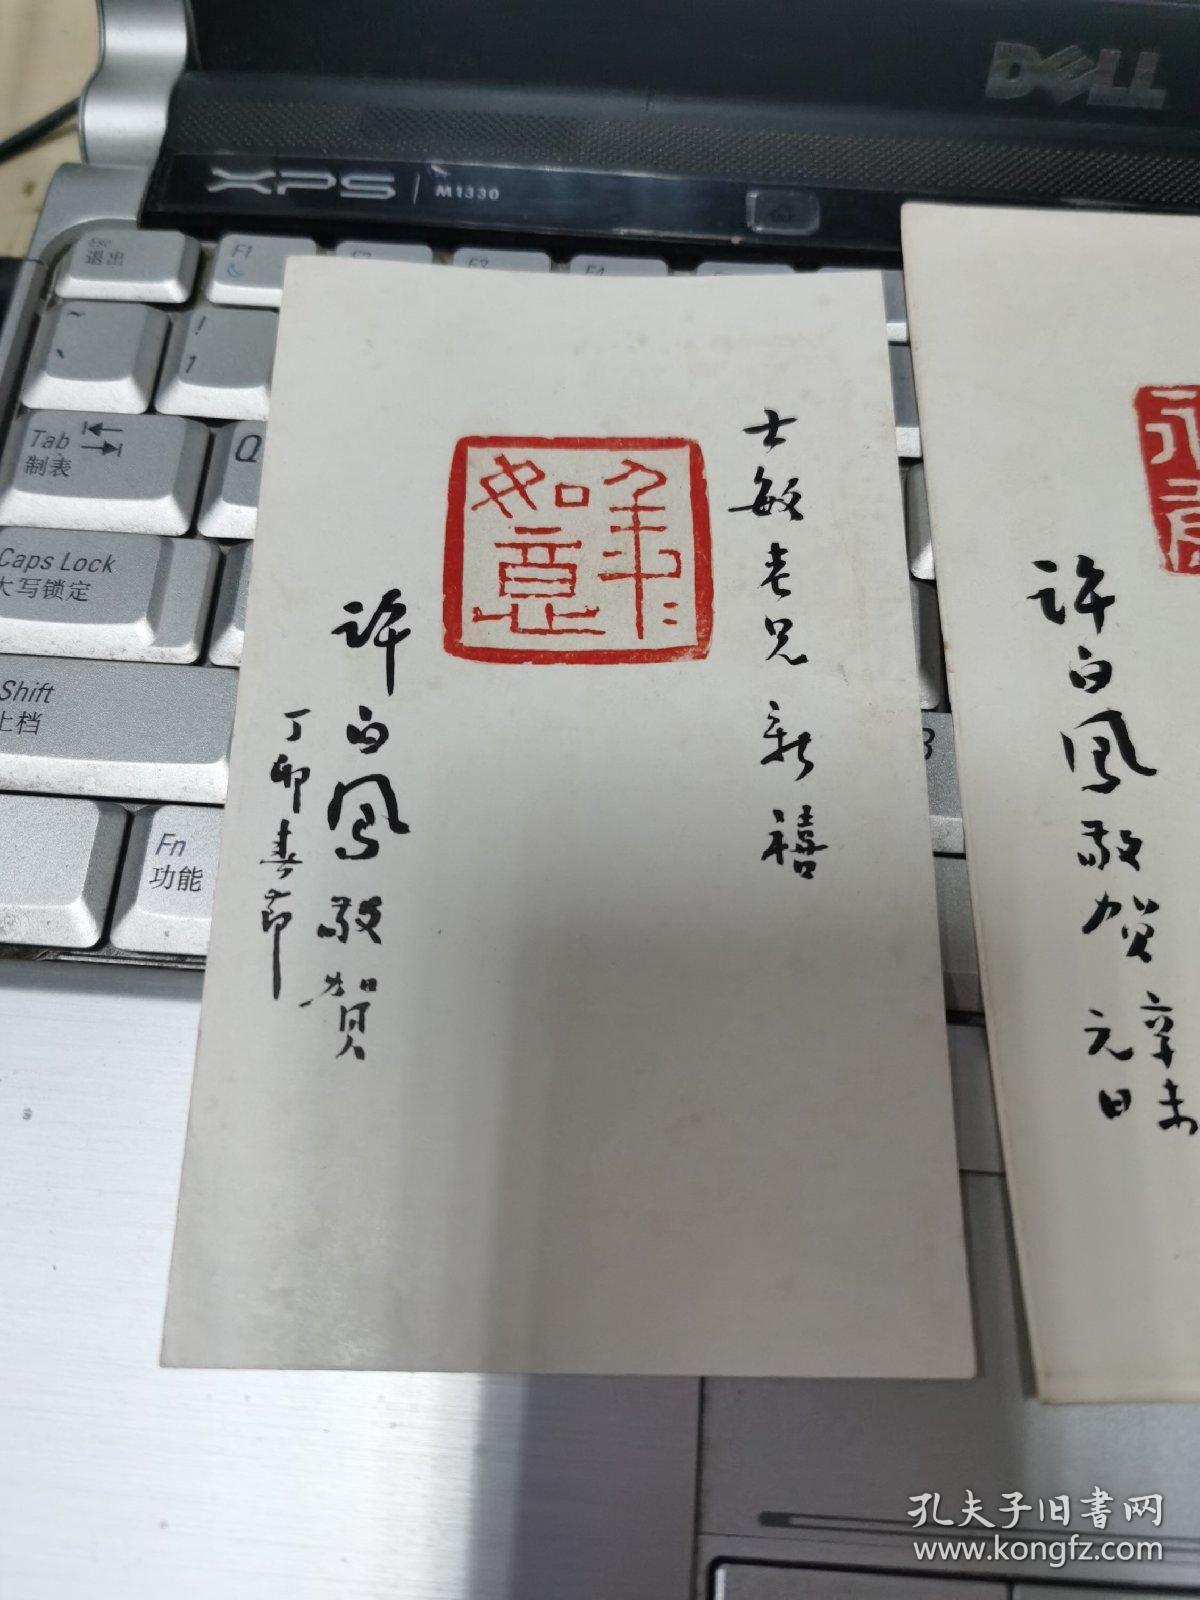 DELL
XPS | M1330
Esc
退出
F1
F2
F3
F4
~
`
!
1
Tab
制表
Q
Caps Lock
大写锁定
Shift
上档
Fn
功能
B
士敏老兄新禧
如意
许白凤敬賀
丁卯春節
许白凤敬贺
辛未
元日
孔夫子旧书网
www.kongfz.com